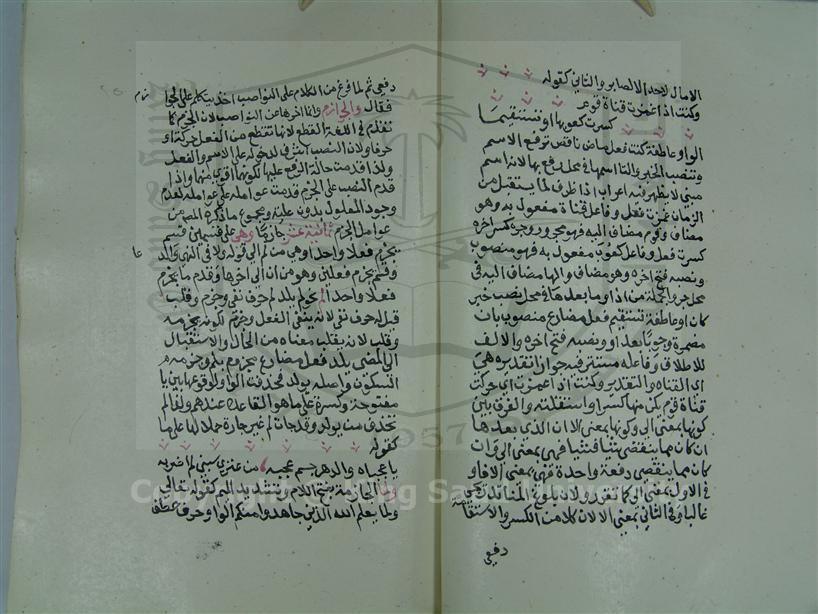 الامال الا لصابر والثاني كقوله
وكنت اذا غمزت قناة قوم
كسرت كعوبها او تستقيما
الواو عاطفة كنت فعل ماض ناقص ترفع الاسم
وتنصب الخبر والتا اسمها في محل رفع بها لانه اسم
مبني لا يظهر فيه اعراب اذا ظرف لما يستقبل من
الزمان غمزت فعل وفاعل قناة مفعول به وهو
مضاف وقوم مضاف اليه فهو مجرور وجره كسر اخره
كسرت فعل وفاعل كعوب مفعول به فهو منصوب
ونصبه فتح اخره وهو مضاف والها مضاف اليه في
محل جر والجملة من اذا وما بعدها في محل نصب خبر
كان او عاطفة تستقيم فعل مضارع منصوب بان
مضمرة وجوبا بعد او ونصبه فتح اخره والالف
للاطلاق وفاعله مستتر فيه جوازا تقديره هي
اي القناة والتقدير وكنت اذا غمزت اي حركت
قناة قوم يكن منها كسر او استقامة والفرق بين
كونها بمعنى الى وكونها بمعنى الا ان الذي بعدها
ان كان مما ينقضي شيا فشيا فهي بمعنى الى وان
كان مما ينقضي دفعة واحدة فهي بمعنى الا فاو
في الاول بمعنى الى كما تقرر ولان بلوغ المنا تدريجي
غالبا وفي الثاني بمعنى الا لان كلا من الكسر والاستقامة
دفعي
دفعي ثم لما فرغ من الكلام على النواصب اخذ يتكلم على الجوا
زم
فقال والجوازم وانما اخرها عن النواصب لان الجزم كما
تقدم في اللغة القطع لانها تقتطع من الفعل حركة او
حرفا ولان النصب اشرف لدخوله على الاسم والفعل
ولذا قدمت حالة الرفع عليها لكونها اقوى منهما واذا
قدم النصب على الجزم قدمت عوامله على عوامله لعدم
وجود المعلول بدون علته ومجموع ما ذكره المص من
عوامل الجزم ثمانية عشر جازما وهي على قسمين قسم
يجزم فعلا واحدا وهي من لم الى قوله ولا في النهي والد
عا
وقسم يجزم فعلين وهو من ان الى اخرها وقدم ما يجزم
فعلا واحدا لم نحو لم يلد لم حرف نفي وجزم وقلب
قيل له حرف نفي لانه ينفي الفعل وجزم لكونه يجزمه
وقلب لانه يقلب معناه من الحال والاستقبال
الى المضي يلد فعل مضارع مجزوم بلم وجزمه
السكون واصله يولد فحذفت الواو لوقوعها بين يا
مفتوحة وكسرة على ما هو القاعدة عندهم ولذا لم
تحذف من يولد وقد جات لم غير جازمة حملا لها على ما
كقوله
يا عجباه والدهر جم عجبه من عنزي سبني لم اضربه
ولما الجازمة بفتح اللام وتشديد الميم كقوله تعالى
ولما يعلم الله الذين جاهدوا منكم الواو حرف عطف
1957